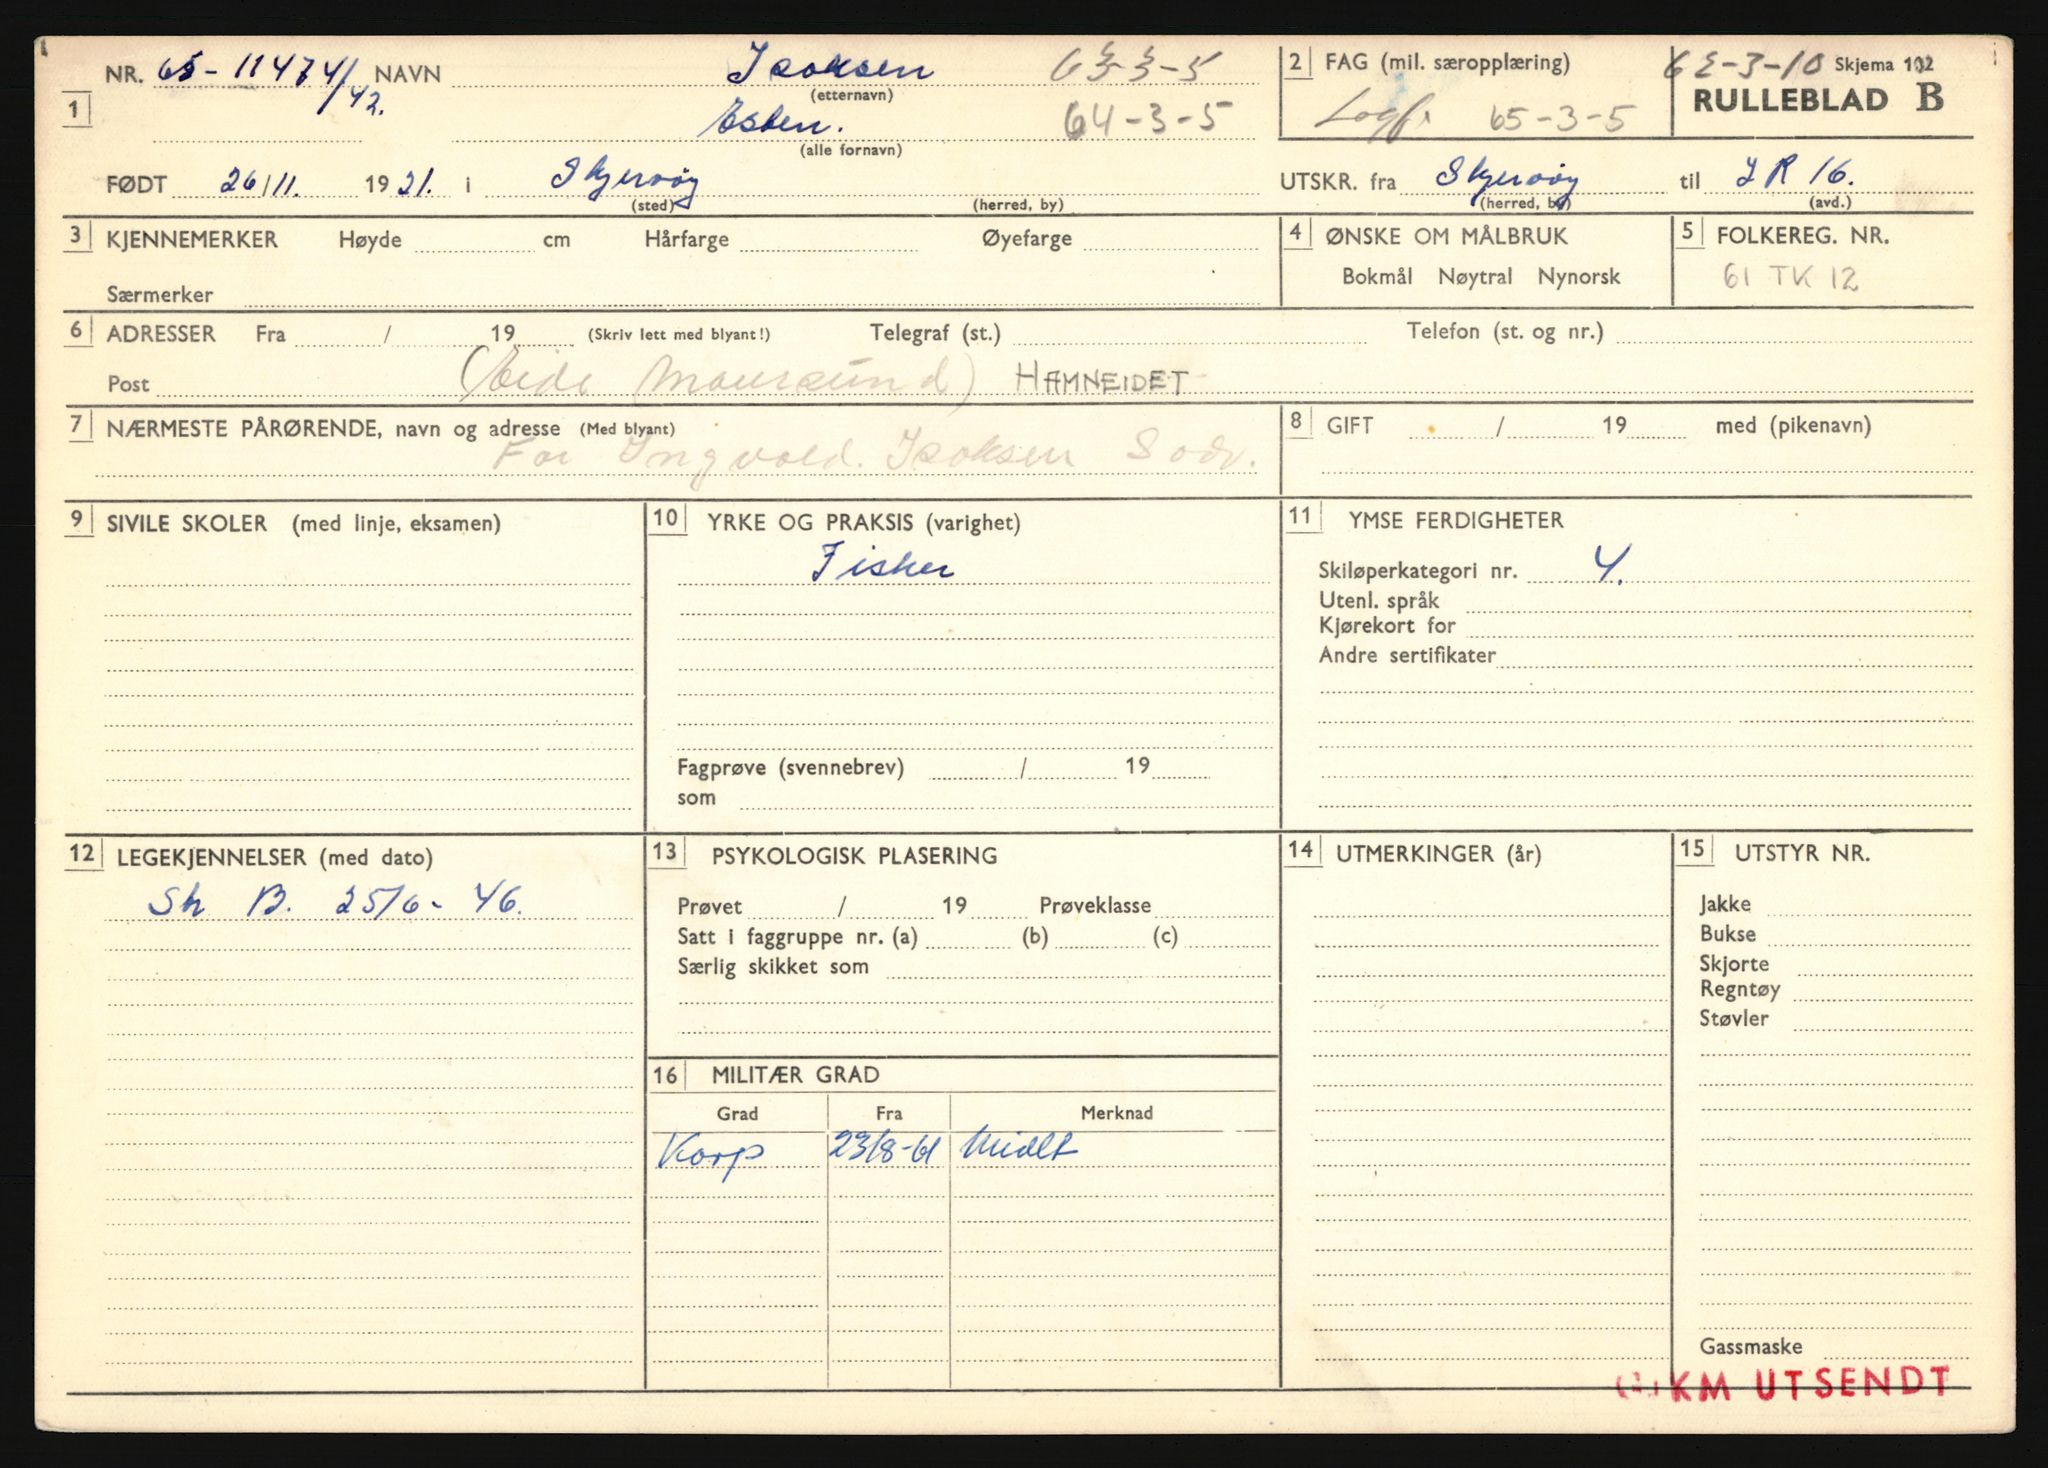 NR. 65-11474/42. NAVN Isaksen 63-3-5
(etternavn)
1
Esben. 64-3-5
(alle fornavn)
FØDT 26/11. 1921. i Skjervøy
(sted) (herred, by)
2 FAG (mil. særopplæring)
Lagf. 65-3-5
62-3-10 Skjema 102
RULLEBLAD B
UTSKR. fra Skjervøy til IR 16.
(herred, by) (avd.)
3 KJENNEMERKER Høyde cm Hårfarge Øyefarge
Særmerker
4 ØNSKE OM MÅLBRUK
Bokmål Nøytral Nynorsk
5 FOLKEREG. NR.
61 TK 12
6 ADRESSER Fra / 19 (Skriv lett med blyant!) Telegraf (st.) Telefon (st. og nr.)
Post (Eide Maursund) HAMNEIDET
7 NÆRMESTE PÅRØRENDE, navn og adresse (Med blyant)
Far Ingvald. Isaksen Sadv.
8 GIFT / 19 med (pikenavn)
9 SIVILE SKOLER (med linje, eksamen)
10 YRKE OG PRAKSIS (varighet)
Fisker
Fagprøve (svennebrev) / 19
som
11 YMSE FERDIGHETER
Skiløperkategori nr. 4.
Utenl. språk
Kjørekort for
Andre sertifikater
12 LEGEKJENNELSER (med dato)
Sk B. 25/6-46.
13 PSYKOLOGISK PLASERING
Prøvet / 19 Prøveklasse
Satt i faggruppe nr. (a) (b) (c)
Særlig skikket som
14 UTMERKINGER (år)
15 UTSTYR NR.
Jakke
Bukse
Skjorte
Regntøy
Støvler
Gassmaske
16 MILITÆR GRAD
Grad Fra Merknad
Korp 23/8-61 Midlt
KM UTSENDT